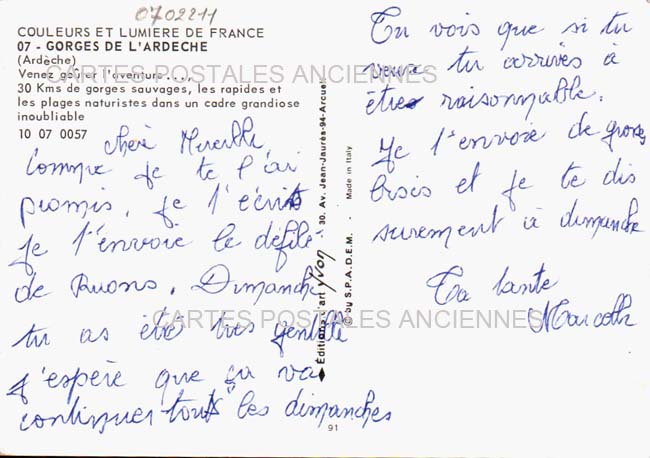 0702211
COULEURS ET LUMIERE DE FRANCE
07 - GORGES DE L'ARDECHE
(Ardèche)
Venez goûter l'aventure...,
30 Kms de gorges sauvages, les rapides et
les plages naturistes dans un cadre grandiose
inoubliable
10 07 0057
CARTES POSTALES ANCIENNES
chère Mireille,
Comme je te l'ai
promis, je t'écris
je t'envoie le défilé
de Ruons. Dimanche
tu as été très gentille
j'espère que ça va
continuer touts les dimanches
Editions d'art YVON 30, Av. Jean-Jaurès-94-Arcueil
© by S.P.A.D.E.M. - Made in Italy
91
Tu vois que si tu
veux tu arrives à
être raisonnable.
Je t'envoie de gross
bisis et je te dis
surement à dimanche
Ta tante
CARTES POSTALES ANCIENNES